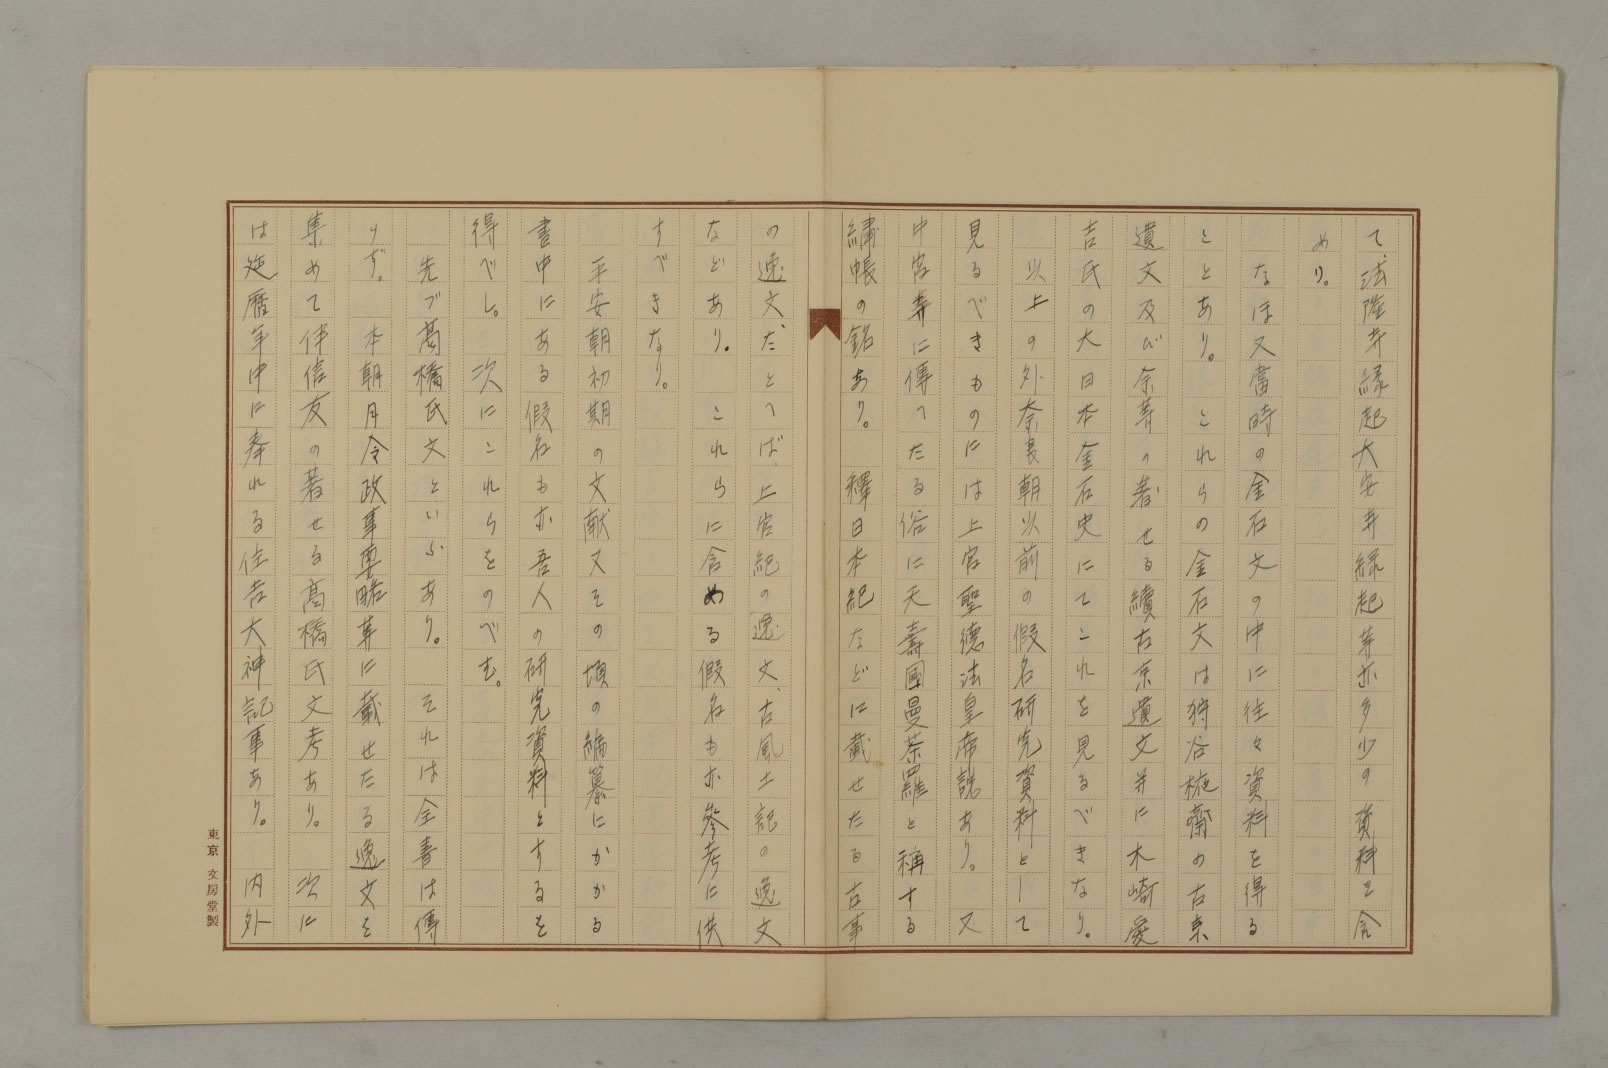 て、法隆寺縁起大安寺縁起等亦多少の資料を含
めり。
なほ又當時の金石文の中に往々資料を得る
ことあり。これらの金石文は狩谷棭齋の古京
遺文及び余等の著せる續古京遺文并に木崎愛
吉氏の大日本金石史にてこれを見るべきなり。
以上の外奈良朝以前の假名研究資料として
見るべきものには上宮聖德法皇帝説あり。又
中宮寺に傳へたる俗に天壽國曼荼羅と稱する
繡帳の銘あり。釋日本紀などに載せたる古事
の逸文、たとへば、上宮紀の逸文、古風土記の逸文
などあり。これらに含める假名も亦參考に供
すべきなり。
平安朝初期の文献又その頃の編纂にかかる
書中にある假名も亦吾人の研究資料とするを
得べし。次にこれらをのべむ。
先づ高橋氏文といふあり。それは全書は傳
らず。本朝月令政事要略等に載せたる逸文を
集めて伴信友の著せる高橋氏文考あり。次に
は延暦年中に奉れる住吉大神記事あり。内外
東京 文房堂製